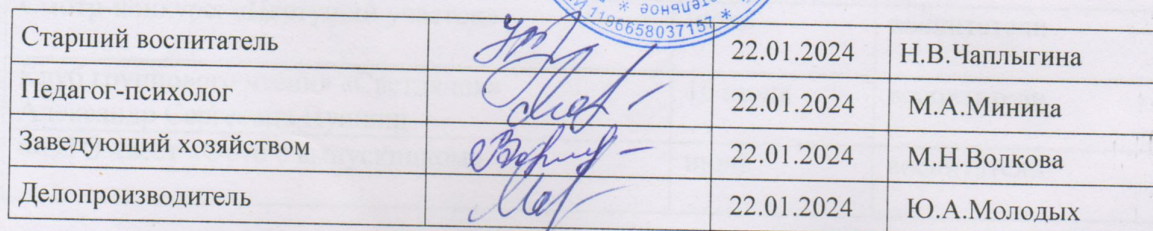 1196658037157 *
Старший воспитатель 22.01.2024 Н.В.Чаплыгина
Педагог-психолог 22.01.2024 М.А.Минина
Заведующий хозяйством 22.01.2024 М.Н.Волкова
Делопроизводитель 22.01.2024 Ю.А.Молодых